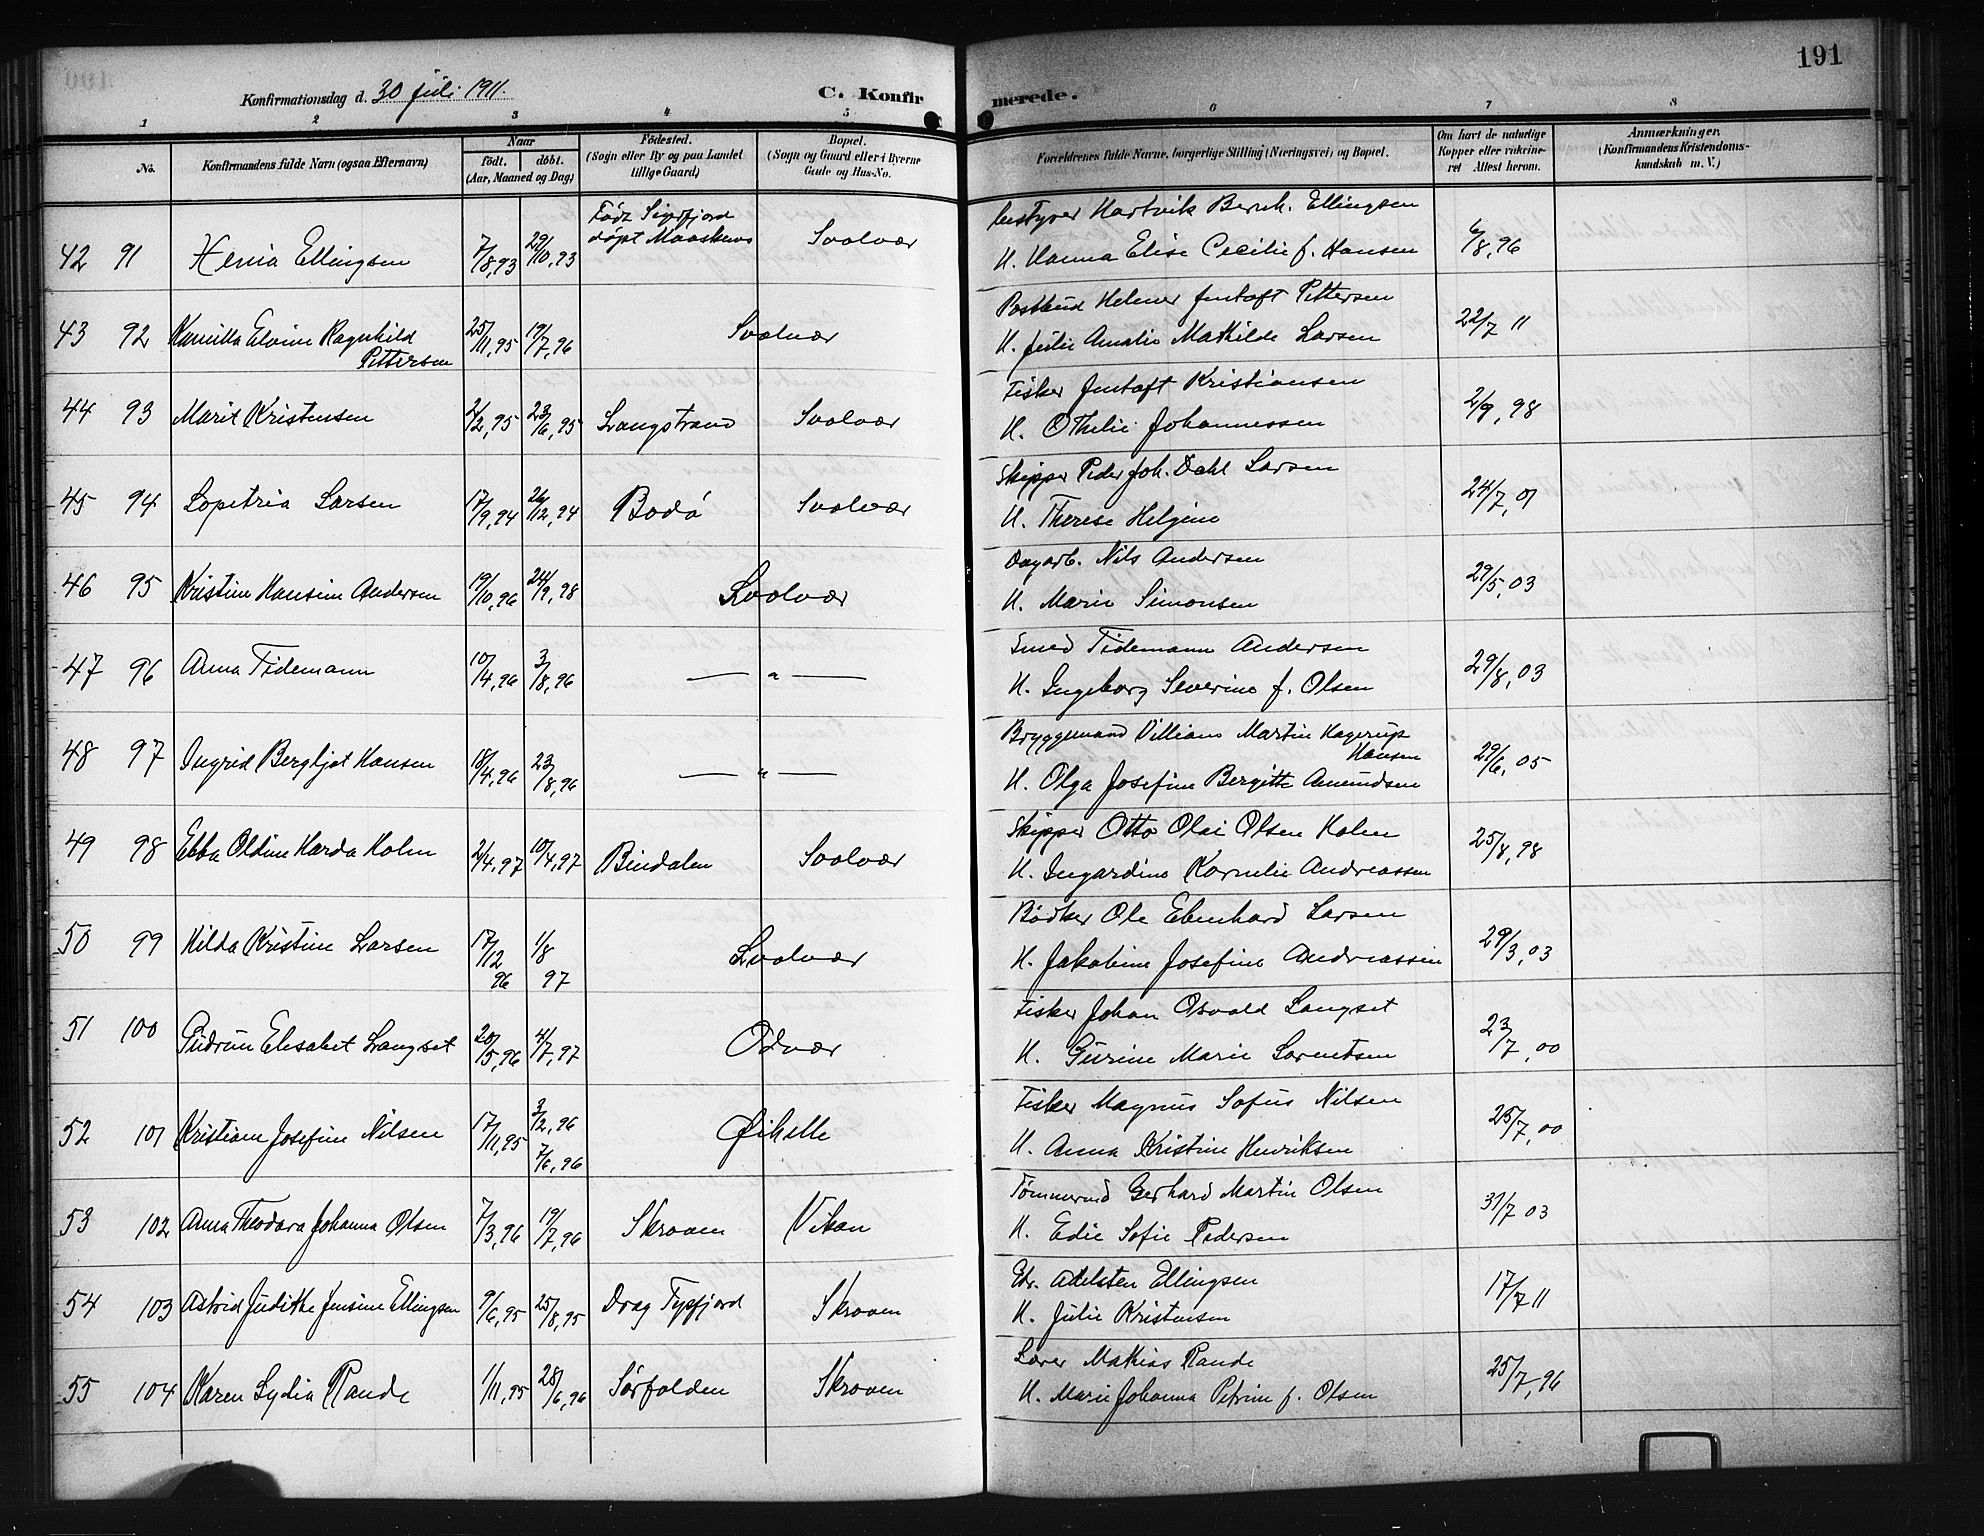 191
Konfirmationsdag d. 30 juli 1911.
C. Konfirmerede.
1 2 3 4 5 6 7 8
No.
Konfirmandens fulde Navn (ogsaa Efternavn)
Naar
født. døbt.
(Aar, Maaned og Dag)
Fødested.
(Sogn eller By og paa Landet
tillige Gaard)
Bopæl.
(Sogn og Gaard eller i Byerne
Gade og Hus-No.
Forældrenes fulde Navne, borgerlige Stilling (Næringsvei) og Bopæl.
Om havt de naturlige
Kopper eller vaccine-
ret Attest herom.
Anmærkninger.
(Konfirmandens Kristendoms-
kundskab m. V.)
Født Sigerfjord Bestyrer Hartvik Bernh. Ellingsen
42 91 Xenia Ellingsen 7/8,93 29/10,93 døpt Svolvær 6/8,96
H. Hanna Elise Cecilie f. Hansen
Postbud Helmer Jentoft Pettersen
43 92 Kamilla Elvine Ragnhild 25/11,95 19/7,96 Svolvær 22/7 11
Pettersen H. Julie Amalie Mathilde Larsen
Fisker Jentoft Kristiansen
44 93 Marit Kristensen 2/2,95 23/6,95 Langstrand Svolvær 2/9,98
H. Othelie Johannessen
Skipper Peder Joh. Dahl Larsen
45 94 Lopetria Larsen 17/9,94 26/12,94 Bodø Svolvær 24/7,01
H. Therese Helgine
Dagarb. Nils Andersen
46 95 Kristine Hansine Andersen 19/10,96 24/9,98 Svolvær 29/5,03
H. Marie Simonsen
Smed Tidemann Andersen
47 96 Anna Tidemann 10/4,96 3/8,96 — " — 29/8,03
H. Ingeborg Severine f. Olsen
Bryggemand Villiam Martin Hagerup
Hansen
48 97 Ingrid Bergljot Hansen 18/4,96 23/8,96 — " — 29/6,05
H. Olga Josefine Bergitte Amundsen
Skipper Otto Olai Olsen Holm
49 98 Ebba Oldine Harda Holm 2/4,97 10/4,97 Bindalen Svolvær 25/8,98
H. Ingardine Kornelie Andreassen
Bødker Ole Ebenhard Larsen
50 99 Hilda Kristine Larsen 17/12 96 1/8 97 Svolvær 29/3,03
H. Jakobine Josefine Andreassen
Fisker Johan Osvald Langset
51 100 Gudrun Elesabet Langset 20/5,96 4/7,97 Odvær 23/7,00
H. Gurine Marie Lorentsen
Fisker Magnus Sofus Nilsen
52 101 Kristiane Josefine Nilsen 17/11,95 3/2,96 7/6,96 Øihelle 25/7,00
H. Anna Kristine Henriksen
Tømmermd Gerhard Martin Olsen
53 102 Anna Theodora Johanna Olsen 7/3,96 19/7,96 Skroven Vikan 31/7 03
H. Edie Sofie Pedersen
Gdr. Adelsten Ellingsen
54 103 Astrid Judithe Jensine Ellingsen 9/6,95 25/8,95 Drag Tysfjord Skroven 17/7 11
H. Julie Kristensen
Lærer Mathias Rande
55 104 Karen Lydia Rande 1/11,95 28/6,96 Sørfolden Skroven 25/7,96
H. Marie Johanna Petrine f. Olsen